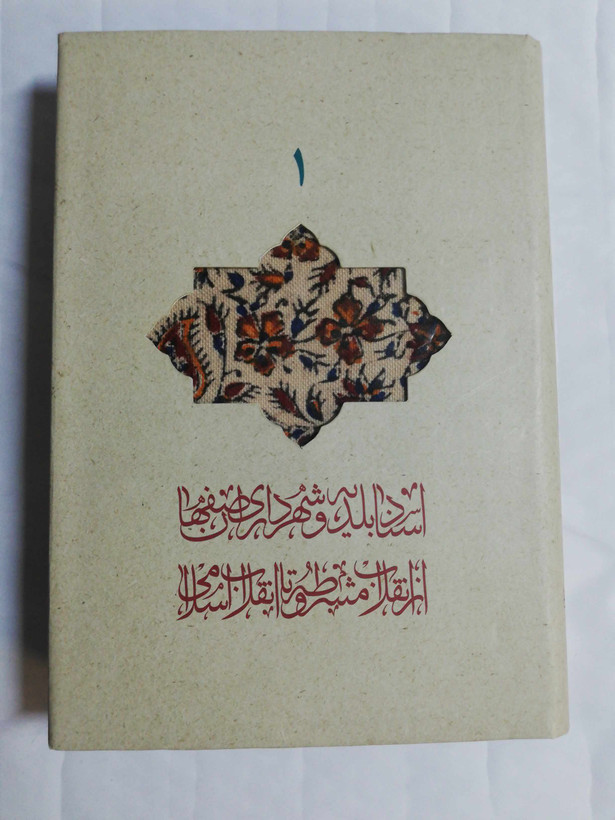 ۱
اسناد بلدیه و شهرداری اصفهان
از انقلاب مشروطه تا انقلاب اسلامی